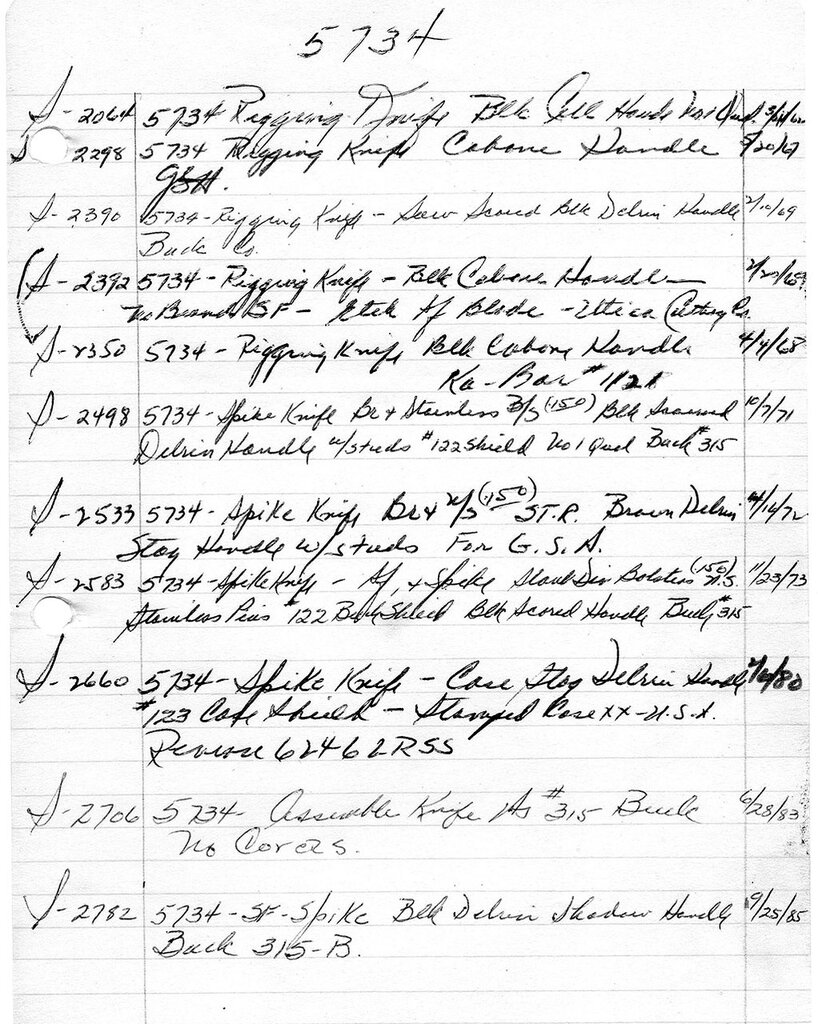 5734
S-2064 5734 Rigging Knife Blk Cell Handle
S-2298 5734 Rigging Knife Cabone Handle 5/20/67
S-2390 5734-Rigging Knife - Saw Scored Blk Delrin Handle 2/10/69
Buck Co.
S-2392 5734-Rigging Knife - Blk Cabone Handle
No Brand SF - Etch Blade - Utica Cutlery Co.
S-2350 5734 - Rigging Knife Blk Cabone Handle 4/4/68
Ka-Bar #1121
S-2498 5734-Spike Knife Br & Stainless B/S (.150) Blk 10/7/71
Delrin Handle w/studs #122 Shield No 1 Qual Buck #315
S-2533 5734-Spike Knife Br & N/S (.150) ST.R. Brown Delrin 4/14/72
Stag Handle w/studs For G.S.A.
S-2583 5734-Spike Knife - & Spike Bolsters (.150) N.S. 11/23/73
Stainless Pins #122 Buck Shield Blk Scored Handle Buck #315
S-2660 5734-Spike Knife - Case Stag Delrin Handle
#123 Case Shield - Stamped Case XX-U.S.A.
Reverse 6246LRSS
S-2706 5734- Assemble Knife As #315 Buck 6/28/83
No Covers.
S-2782 5734-SF-Spike Blk Delrin Shadow Handle 9/25/85
Buck 315-B.